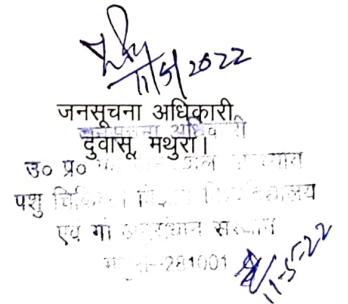 11/5/2022
जनसूचना अधिकारी
जनसूचना अधिकारी
दुवासू, मथुरा।
उ० प्र०
पशु चिकित्सा विज्ञान विश्वविद्यालय
एवं गो अनुसंधान संस्थान
मथुरा-281001
11-5-22